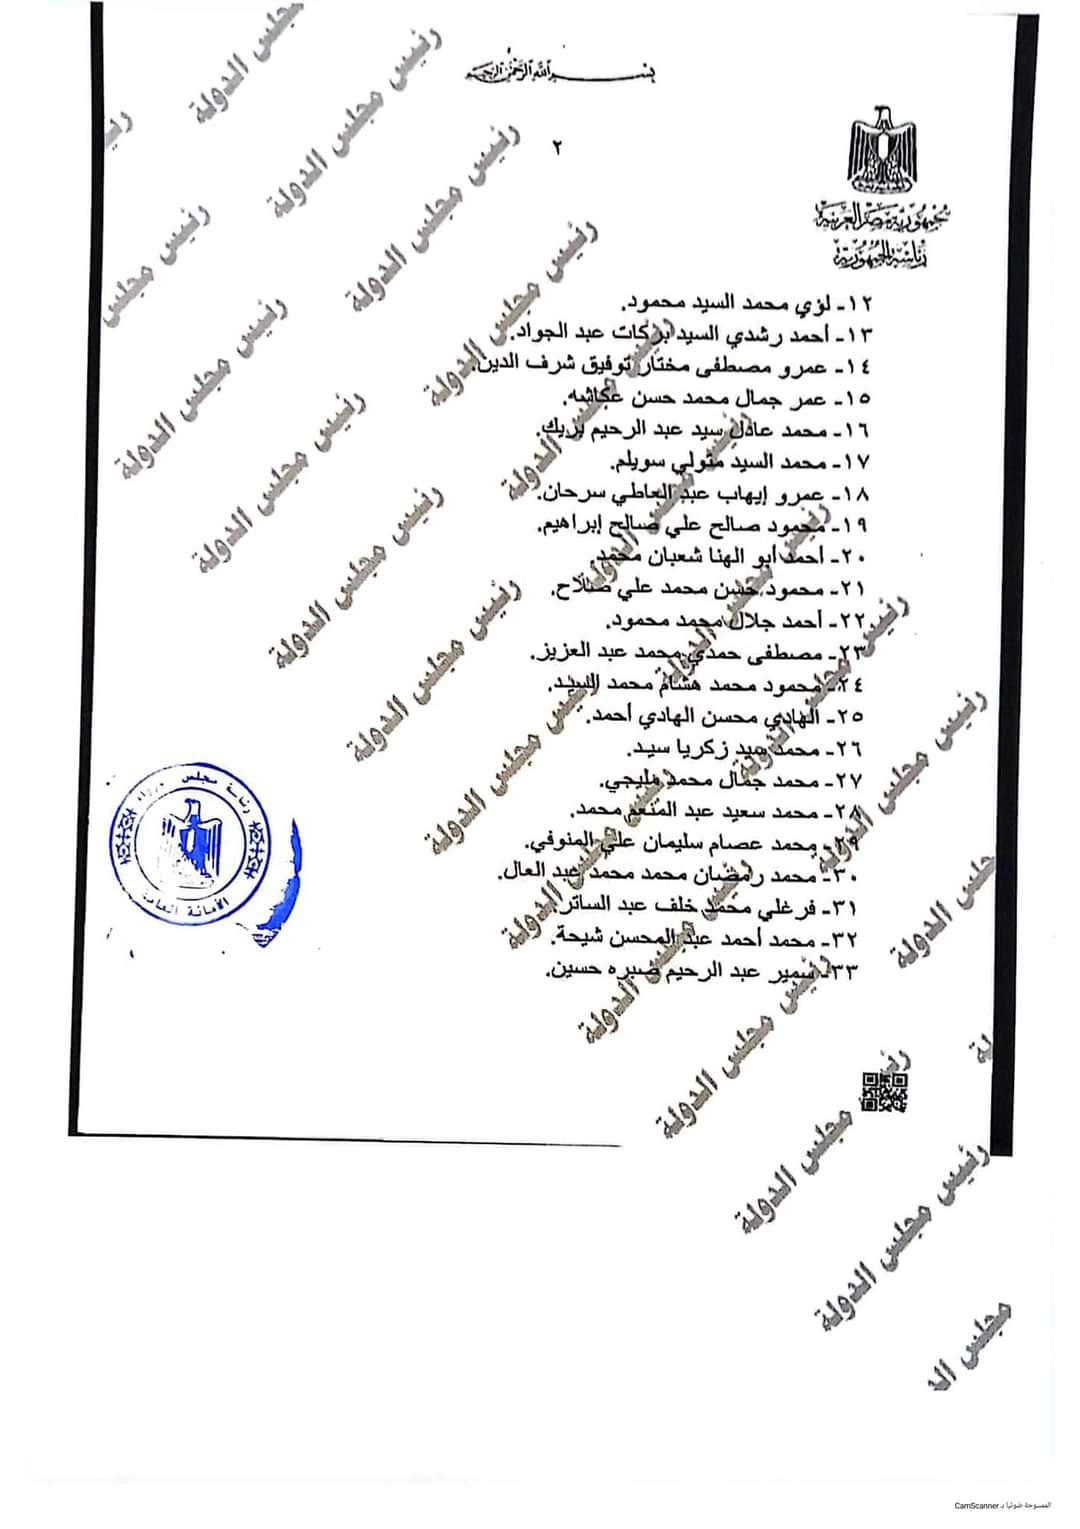 بسم الله الرحمن الرحيم
٢
جمهورية مصر العربية
رئاسة الجمهورية
١٢- لؤي محمد السيد محمود.
١٣- أحمد رشدي السيد بركات عبد الجواد.
١٤- عمرو مصطفى مختار توفيق شرف الدين.
١٥- عمر جمال محمد حسن عكاشه.
١٦- محمد عادل سيد عبد الرحيم بريك.
١٧- محمد السيد متولي سويلم.
١٨- عمرو إيهاب عبد العاطي سرحان.
١٩- محمود صالح علي صالح إبراهيم.
٢٠- أحمد أبو الهنا شعبان محمد.
٢١- محمود حسن محمد علي صلاح.
٢٢- أحمد جلال محمد محمود.
٢٣- مصطفى حمدي محمد عبد العزيز.
٢٤- محمود محمد هشام محمد السيد.
٢٥- الهادي محسن الهادي أحمد.
٢٦- محمد سيد زكريا سيد.
٢٧- محمد جمال محمد مليجي.
٢٨- محمد سعيد عبد المنعم محمد.
٢٩- محمد عصام سليمان علي المنوفي.
٣٠- محمد رمضان محمد محمد عبد العال.
٣١- فرغلي محمد خلف عبد الساتر.
٣٢- محمد أحمد عبد المحسن شيحة.
٣٣- سمير عبد الرحيم صبره حسين.
رئاسة مجلس
الأمانة العامة
رئيس مجلس الدولة
الممسوحة ضوئيا بـ CamScanner